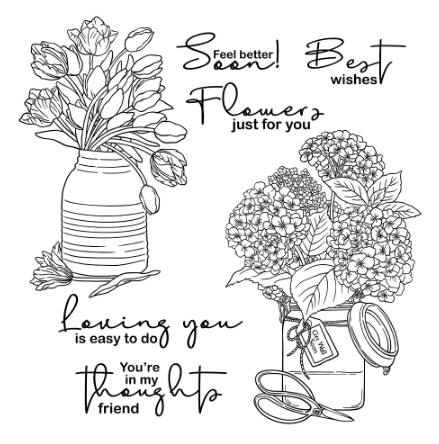 Feel better
Soon!
Best
wishes
Flowers
just for you
Loving you
is easy to do
You're
in my
thoughts
friend
Get Well
Soon